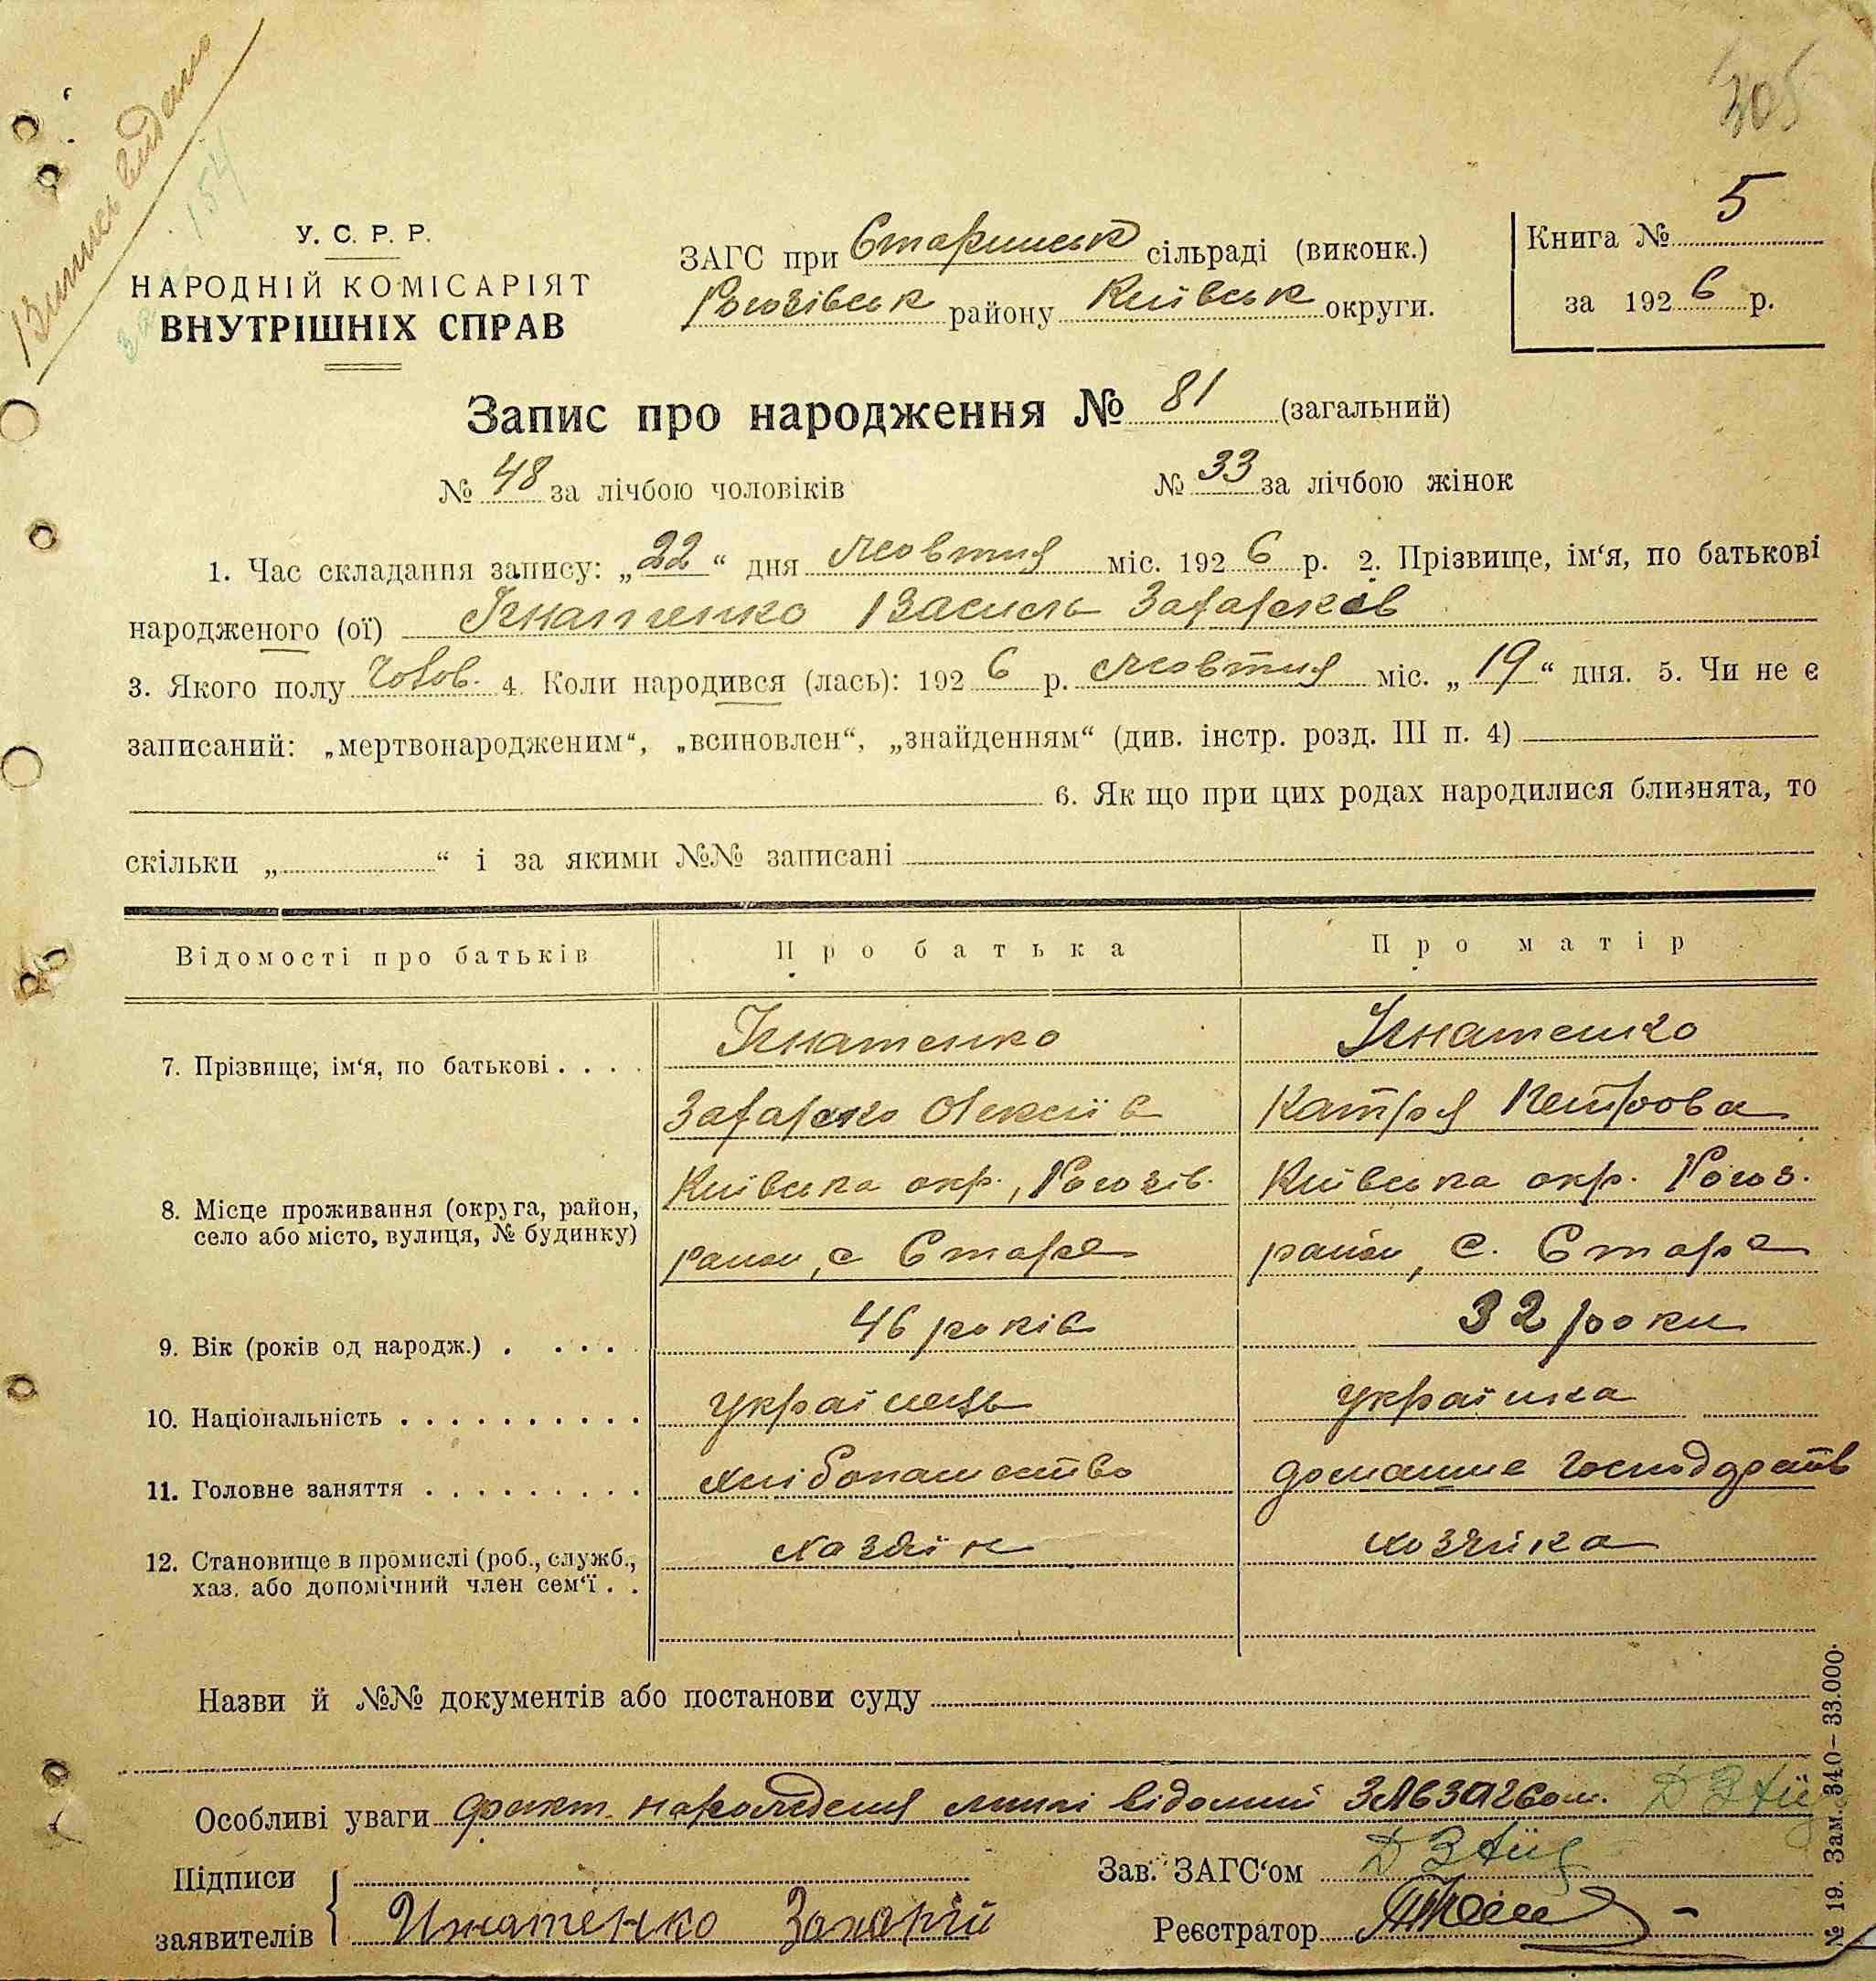 305
Випись видано
154
У. С. Р. Р.
НАРОДНІЙ КОМІСАРІЯТ
ВНУТРІШНІХ СПРАВ
ЗАГС при Старинськ сільраді (виконк.)
Рогозівськ району Київськ округи.
Книга № 5
за 1926 р.
Запис про народження № 81 (загальний)
№ 48 за лічбою чоловіків № 33 за лічбою жінок
1. Час складання запису: „22“ дня жовтня міс. 1926 р. 2. Прізвище, ім‘я, по батькові
народженого (ої) Ігнатченко Василь Захарків
3. Якого полу Чолов. 4. Коли народився (лась): 1926 р. жовтня міс. „19“ дня. 5. Чи не є
записаний: „мертвонародженим“, „всиновлен“, „знайденням“ (див. інстр. розд. III п. 4)
6. Як що при цих родах народилися близнята, то
скільки „ “ і за якими №№ записані
Відомості про батьків Про батька Про матір
7. Прізвище, ім‘я, по батькові . . . . Ігнатенко Ігнатенко
Захарко Олексіїв Катря Петрова
8. Місце проживання (округа, район, село або місто, вулиця, № будинку) Київська окр., Рогозів. Київська окр. Рогоз.
район, с Старе район, с. Старе
9. Вік (років од народж.) . . . . . 46 років 32 роки
10. Національність . . . . . . . . . . українець українка
11. Головне заняття . . . . . . . . . хлібопашество домашнє господарств
12. Становище в промислі (роб., служб., хаз. або допомічний член сем‘ї . . хазяїн хозяйка
Назви й №№ документів або постанови суду
Особливі уваги факт народження мині відомий
Підписи
заявителів Игнатенко Захарій
Зав. ЗАГС‘ом
Реєстратор
№ 19. Зам. 340–33.000.